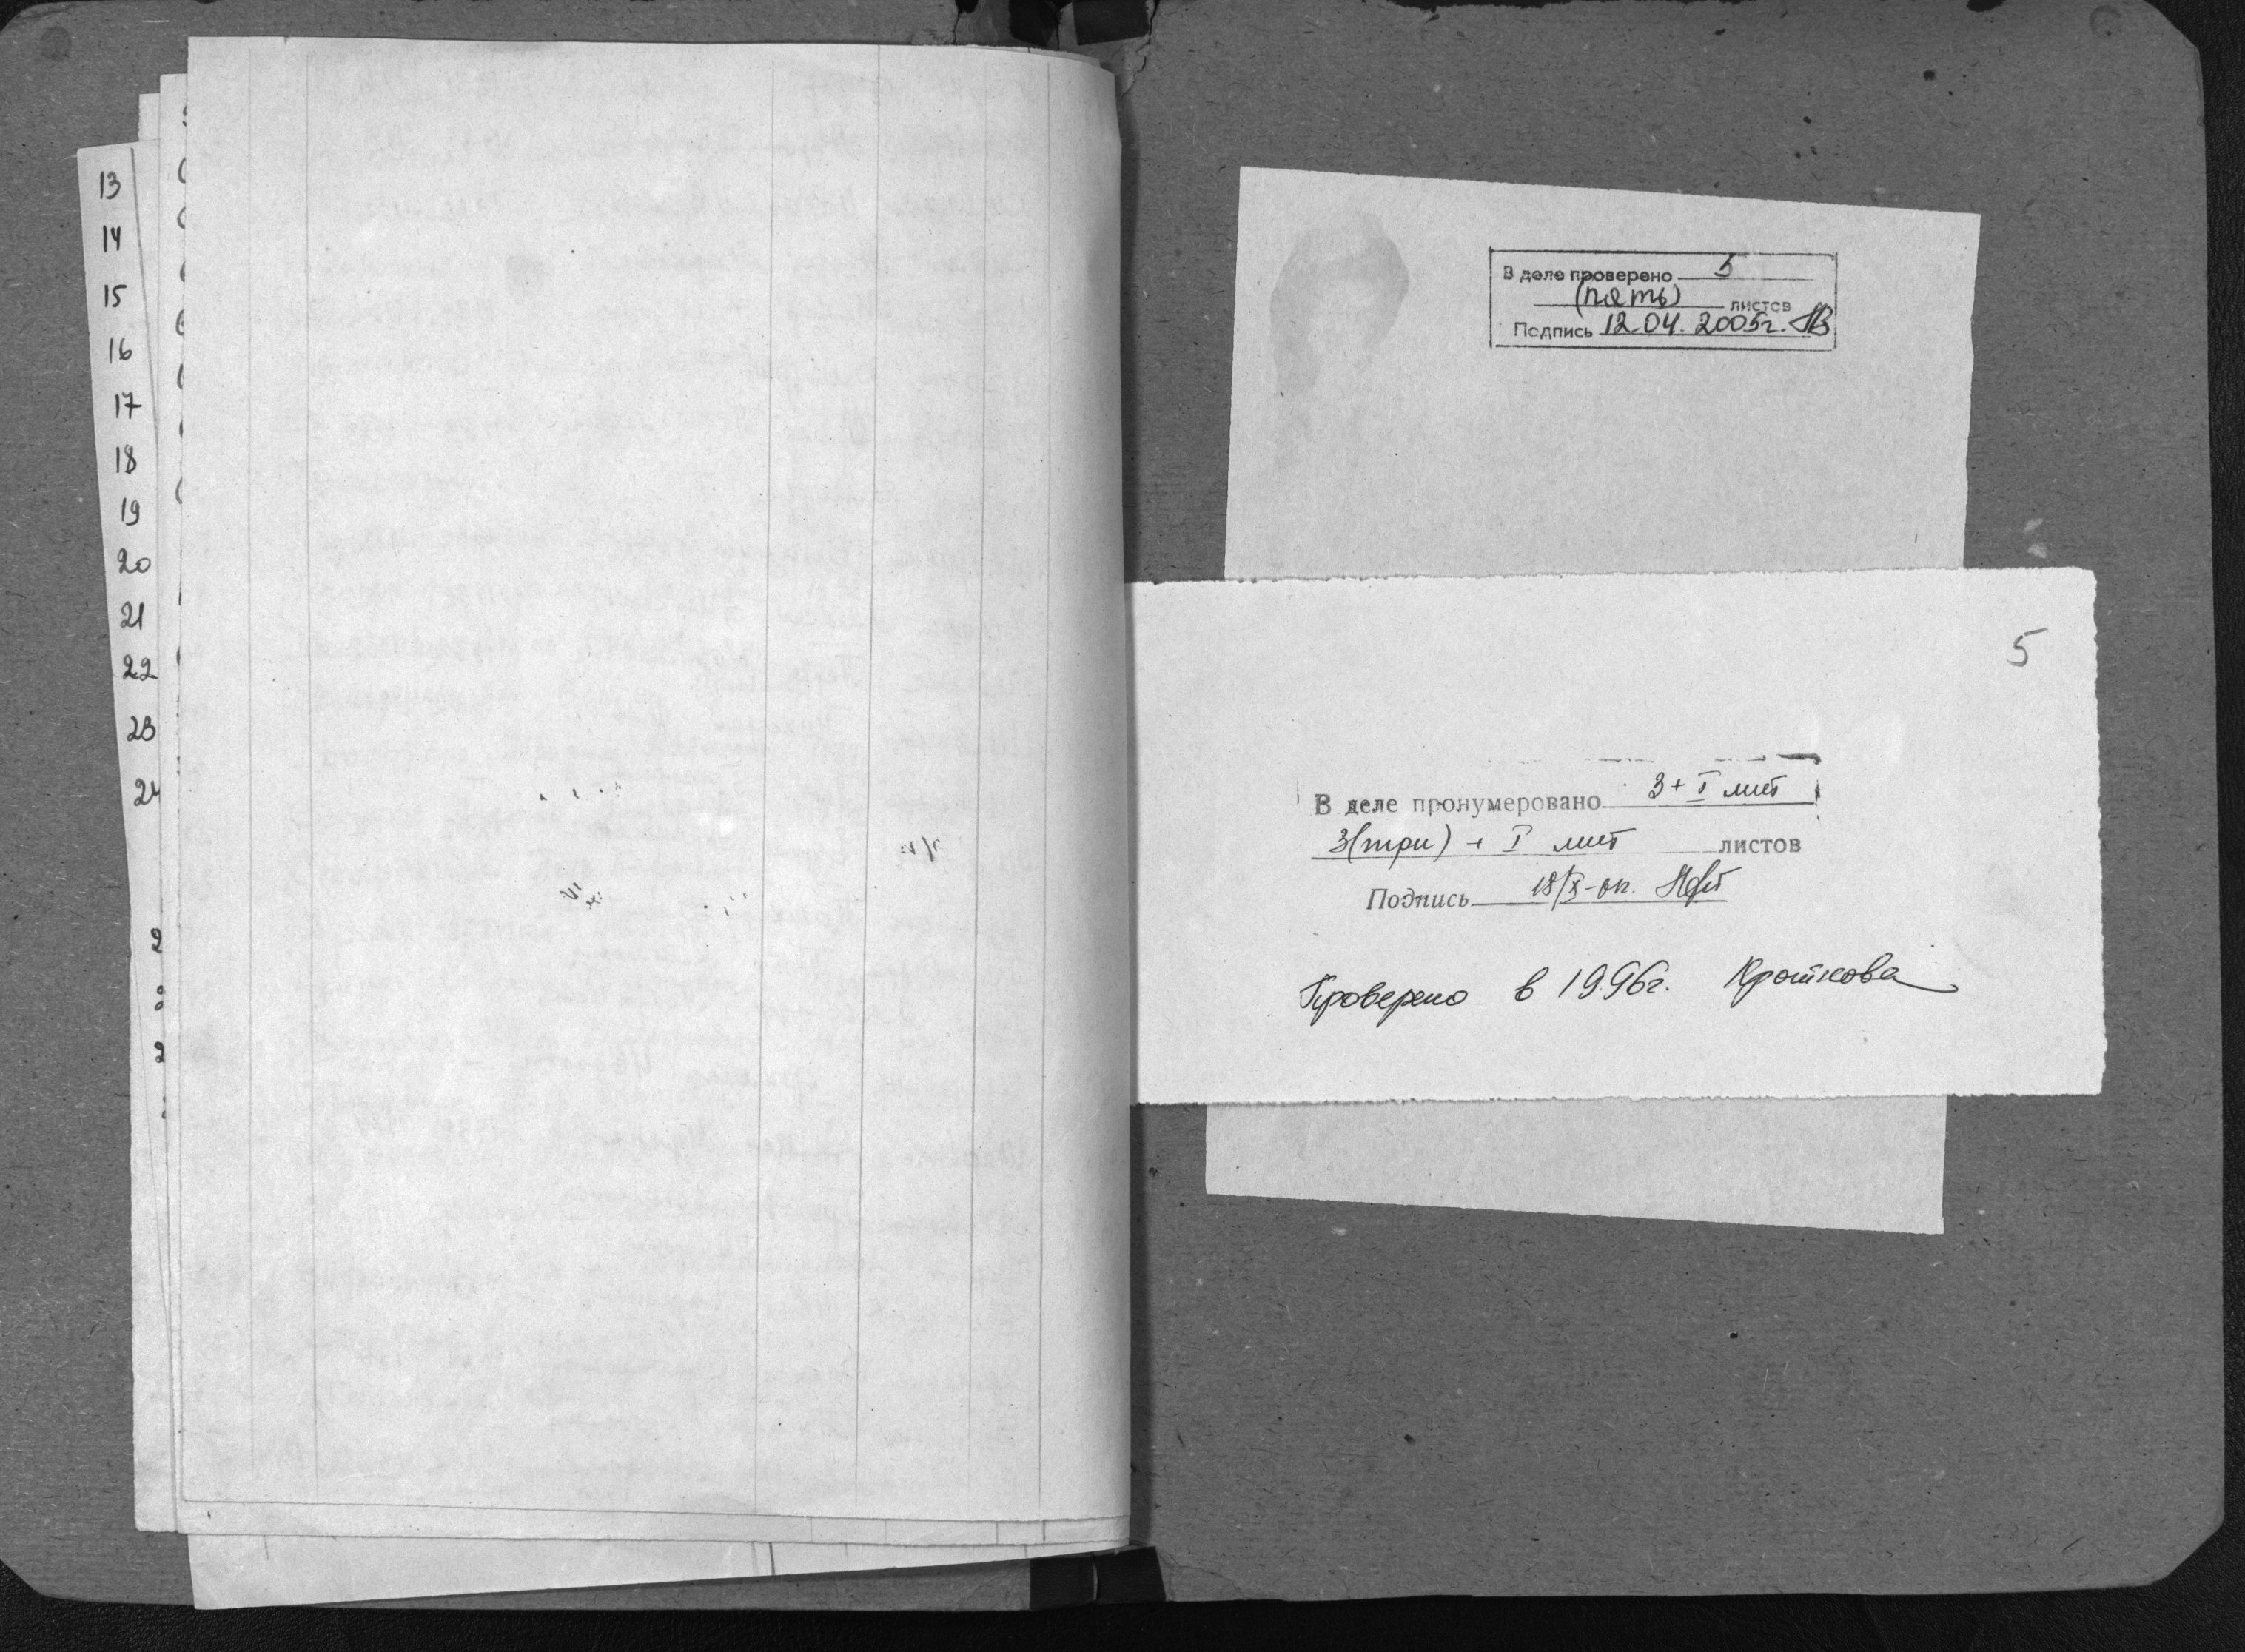 13
14
15
16
17
18
19
20
21
22
23
24
В деле проверено 5
(пять) листов
Подпись 12.04.2005г.
5
В деле пронумеровано 3+I лит
3(три) + I лит листов
Подпись 18/X-
Проверено в 1996г. Кроткова